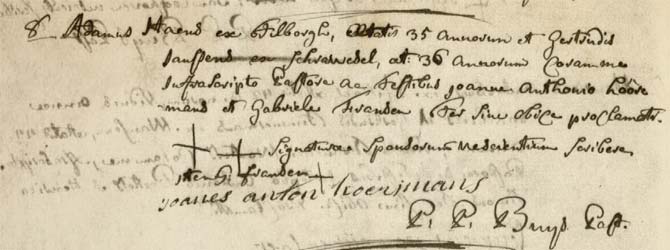 8. Adamus Haend ex Tilborgh, ætatis 35 Annorum et Gertrudis
Janssend ex Schrawedel, æt: 36 Annorum Coram me
Infrascripto Pastore ac Testibus Joanne Anthonio Hoôre
mand et Gabriele franden Ter sine obice proclamatis.
Signaturæ Sponsorum nescientium scribere
franden
joanes anton hoermans
P. P. Buys Past.